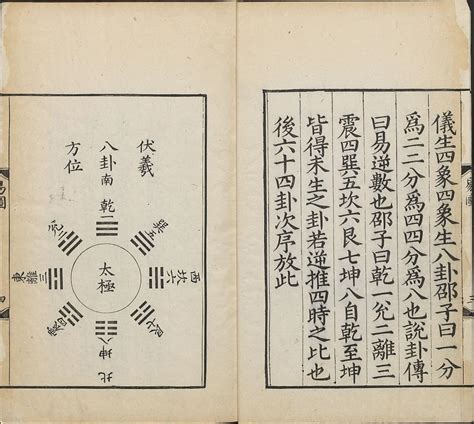 儀生四象四象生八卦邵子曰一分
為二二分為四四分為八也說卦傳
曰易逆數也邵子曰乾一兌二離三
震四巽五坎六艮七坤八自乾至坤
皆得未生之卦若逆推四時之比也
後六十四卦次序放此
伏羲
八卦
方位
南
乾一
兌二
巽五
東
離三
太極
坎六
西
震四
艮七
坤八
北
易圖
四
三